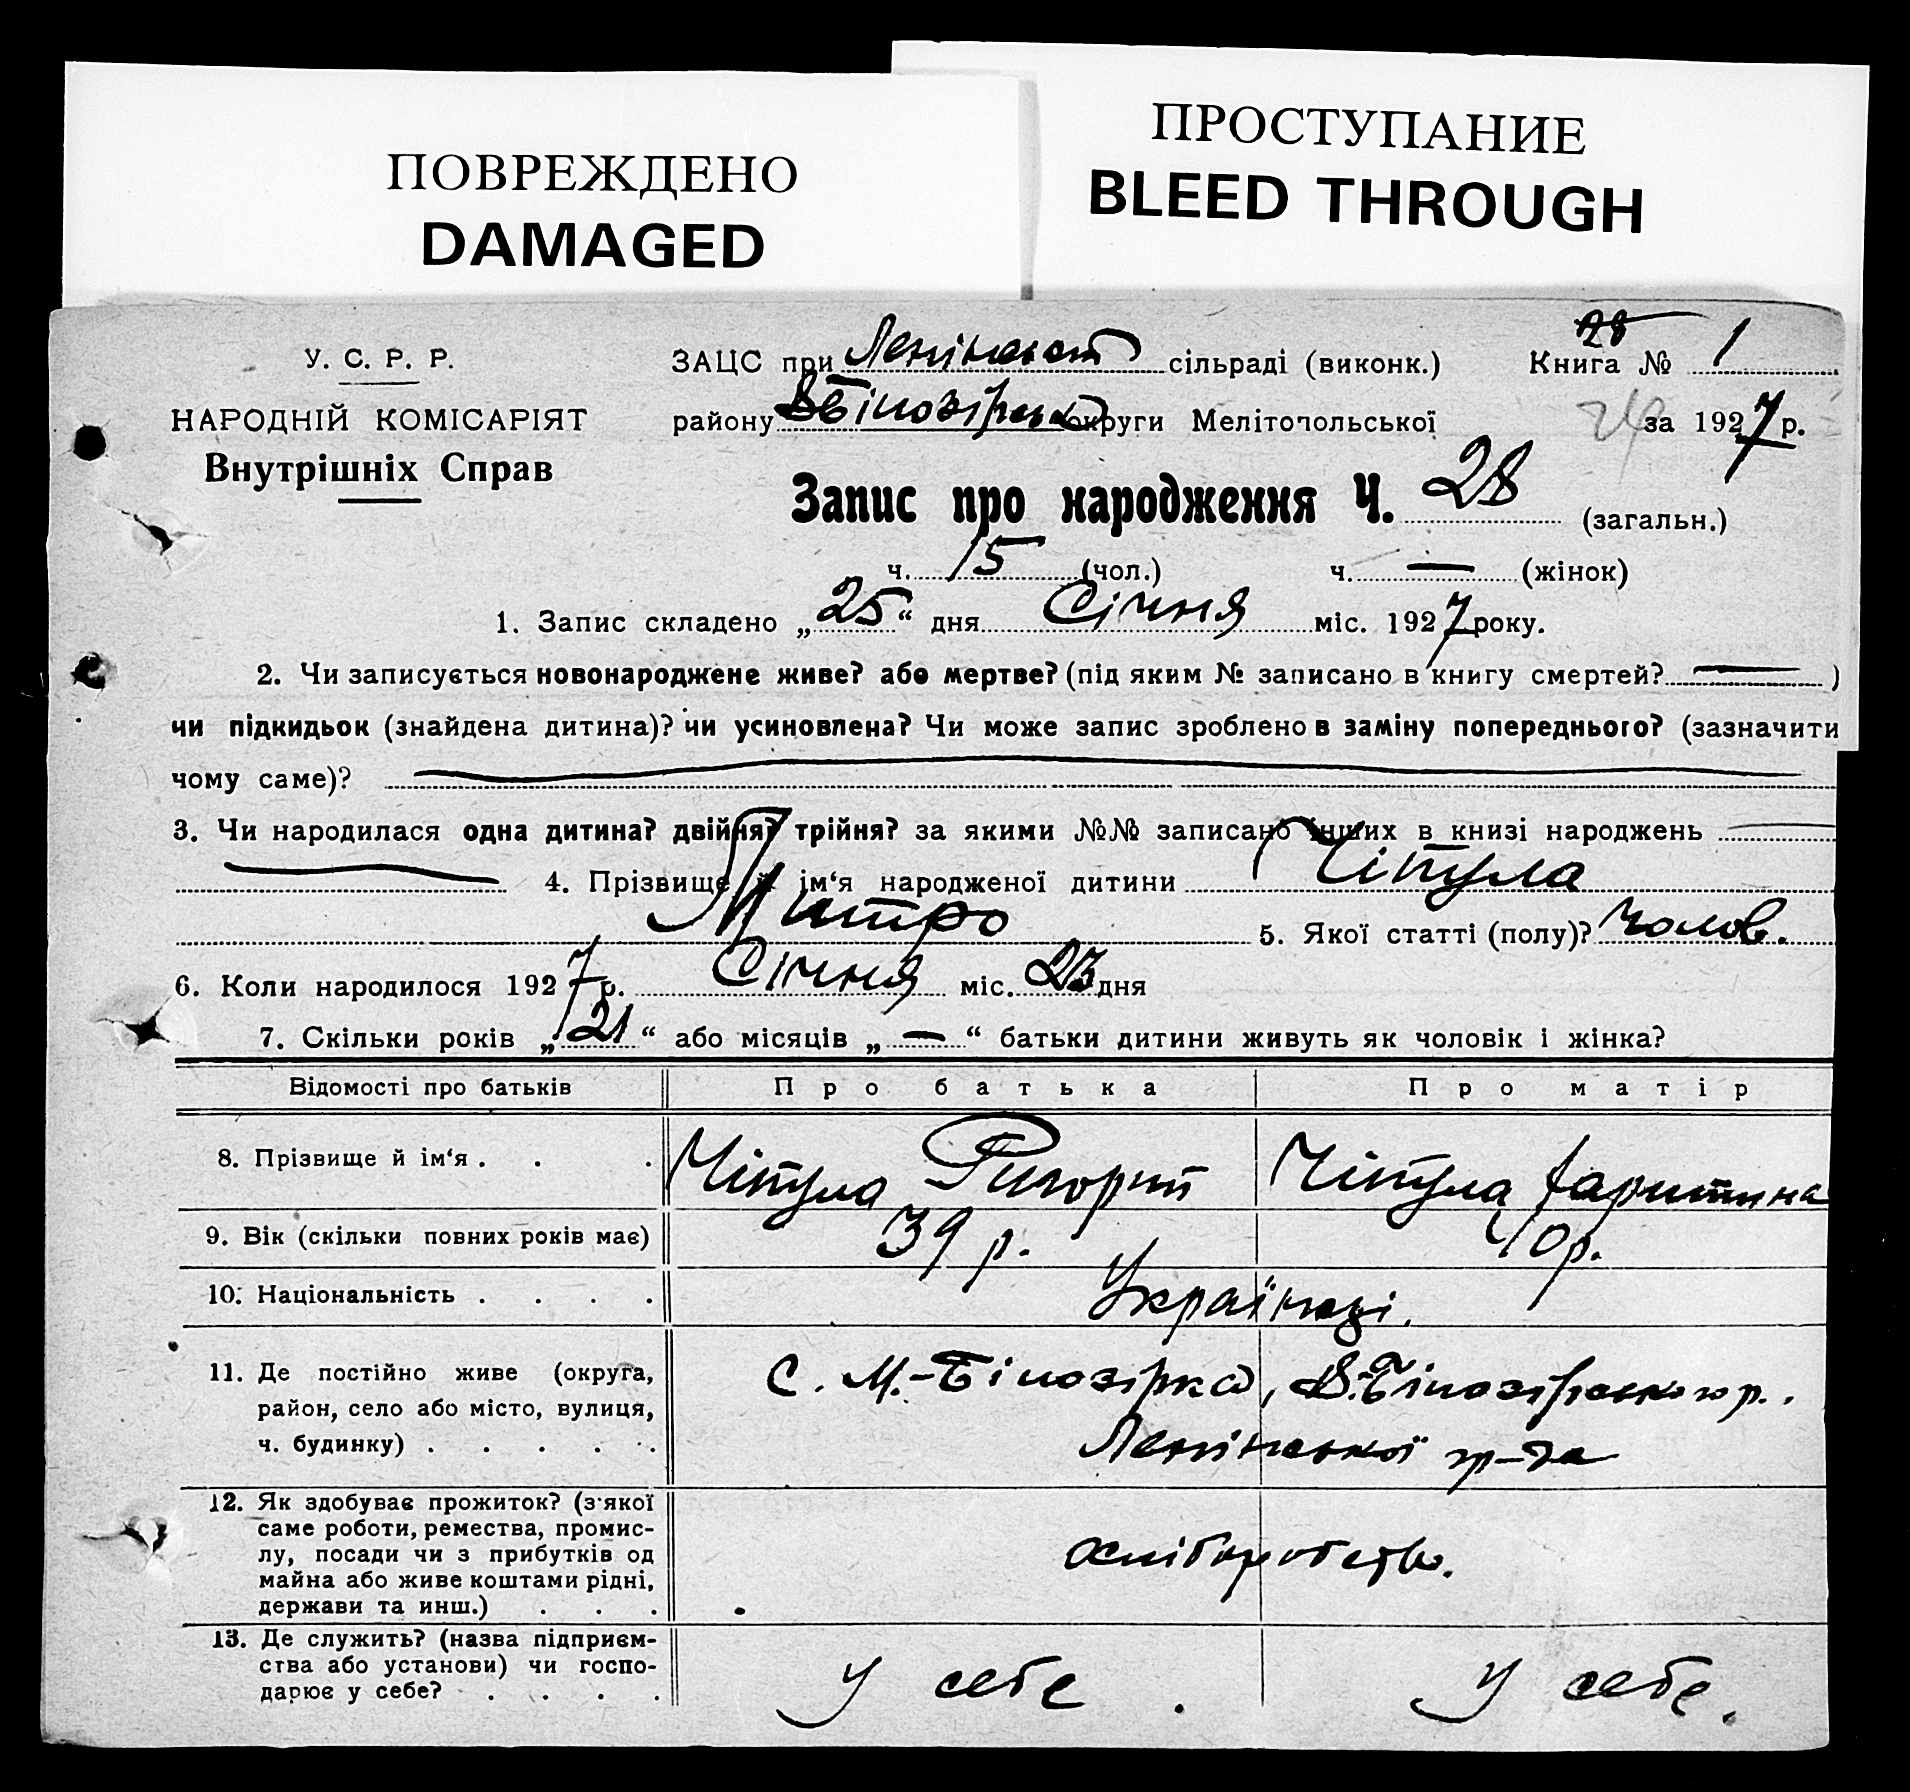 ПОВРЕЖДЕНО
DAMAGED
ПРОСТУПАНИЕ
BLEED THROUGH
У. С. Р. Р.
НАРОДНІЙ КОМІСАРІЯТ
Внутрішніх Справ
ЗАЦС при сільраді (виконк.) Книга № 28 1
району В Білозірськ округи Мелітопольської за 1927 р.
Запис про народження Ч. 28 (загальн.)
ч. 15 (чол.) ч. — (жінок)
1. Запис складено „25“ дня Січня міс. 1927 року.
2. Чи записується новонароджене живе? або мертве? (під яким № записано в книгу смертей? — )
чи підкидьок (знайдена дитина)? чи усиновлена? Чи може запис зроблено в заміну попереднього? (зазначити
чому саме)? —
3. Чи народилася одна дитина? двійня? трійня? за якими №№ записано інших в книзі народжень —
— 4. Прізвище й ім‘я народженої дитини Чіпула
Дмитро 5. Якої статті (полу)? Чолов.
6. Коли народилося 1927 р. Січня міс. 23 дня
7. Скільки років „21“ або місяців „—“ батьки дитини живуть як чоловік і жінка?
Відомості про батьків Про батька Про матір
8. Прізвище й ім‘я . . . Чіпула Григорій Чіпула Харитина
9. Вік (скільки повних років має) 39 р. 40 р.
10. Національність . . . . Українці.
11. Де постійно живе (округа,
район, село або місто, вулиця,
ч. будинку) . . . . .
С. М.-Білозірка, В.-Білозірського р.
Ленінської
12. Як здобуває прожиток? (з якої
саме роботи, ремества, промис-
лу, посади чи з прибутків од
майна або живе коштами рідні,
держави та инш.) . . .
хліборобство.
13. Де служить? (назва підприєм-
ства або установи) чи госпо-
дарює у себе? . . . .
у себе . у себе.